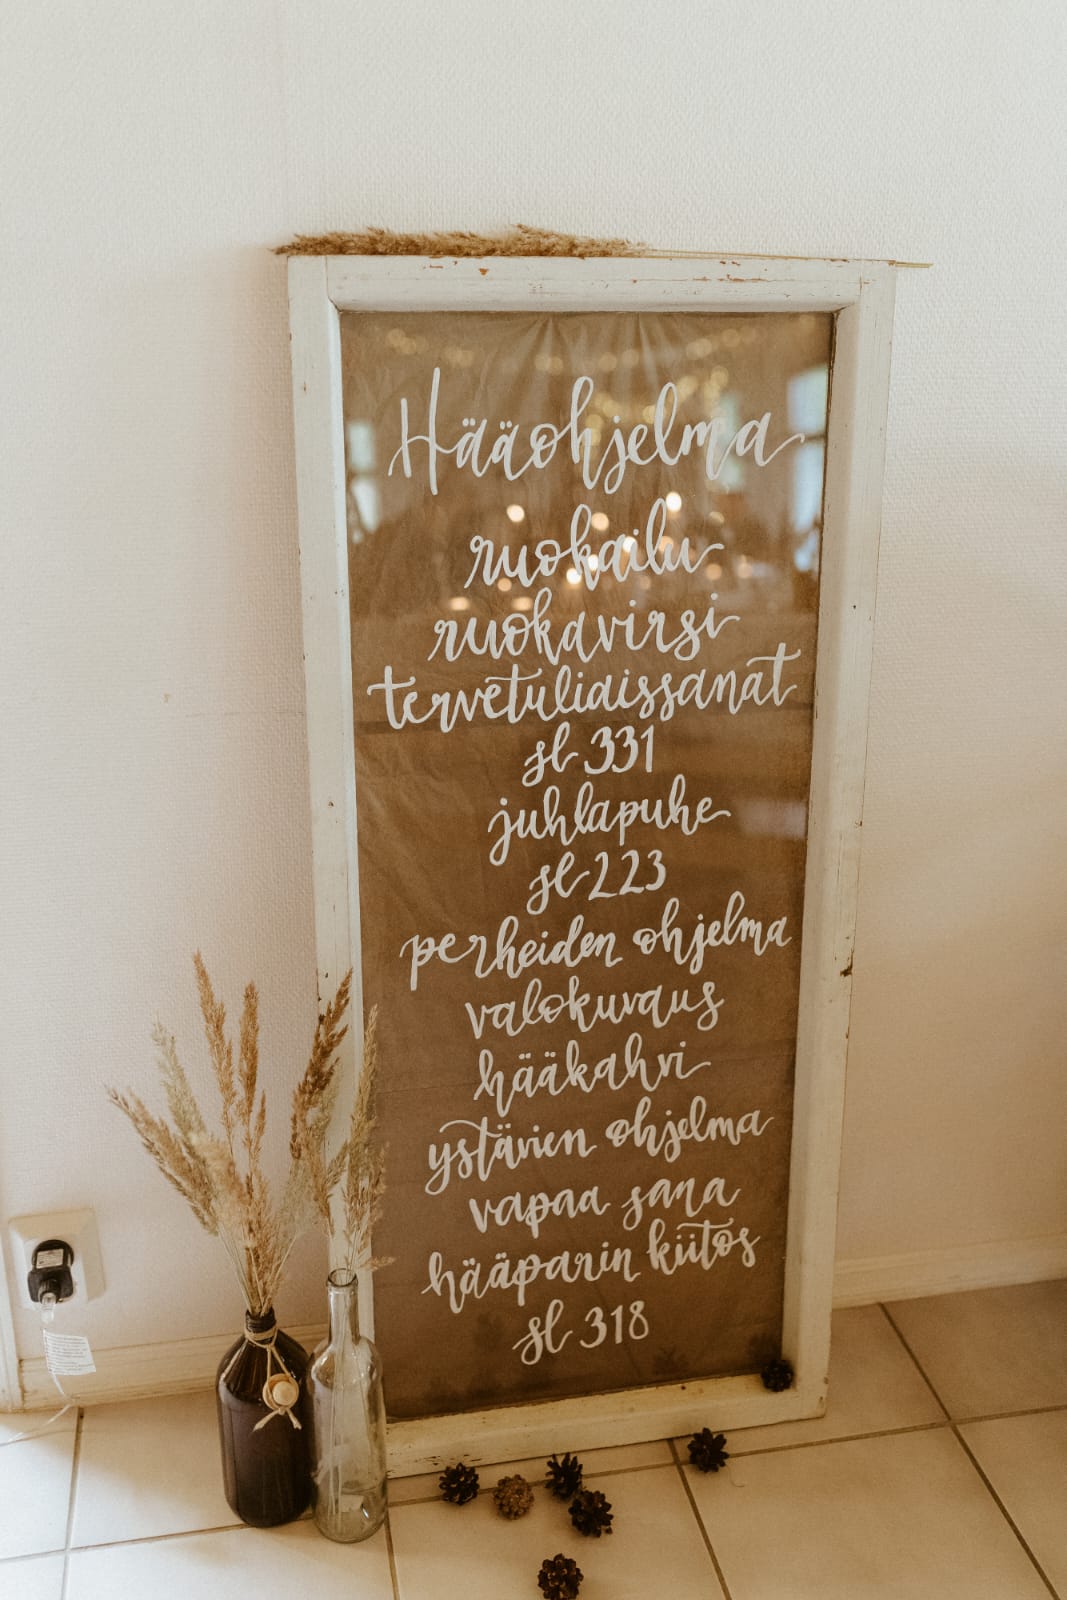 Hääohjelma
ruokailu
ruokavirsi
tervetuliaissanat
sl 331
juhlapuhe
sl 223
perheiden ohjelma
valokuvaus
hääkahvi
ystävien ohjelma
vapaa sana
hääparin kiitos
sl 318